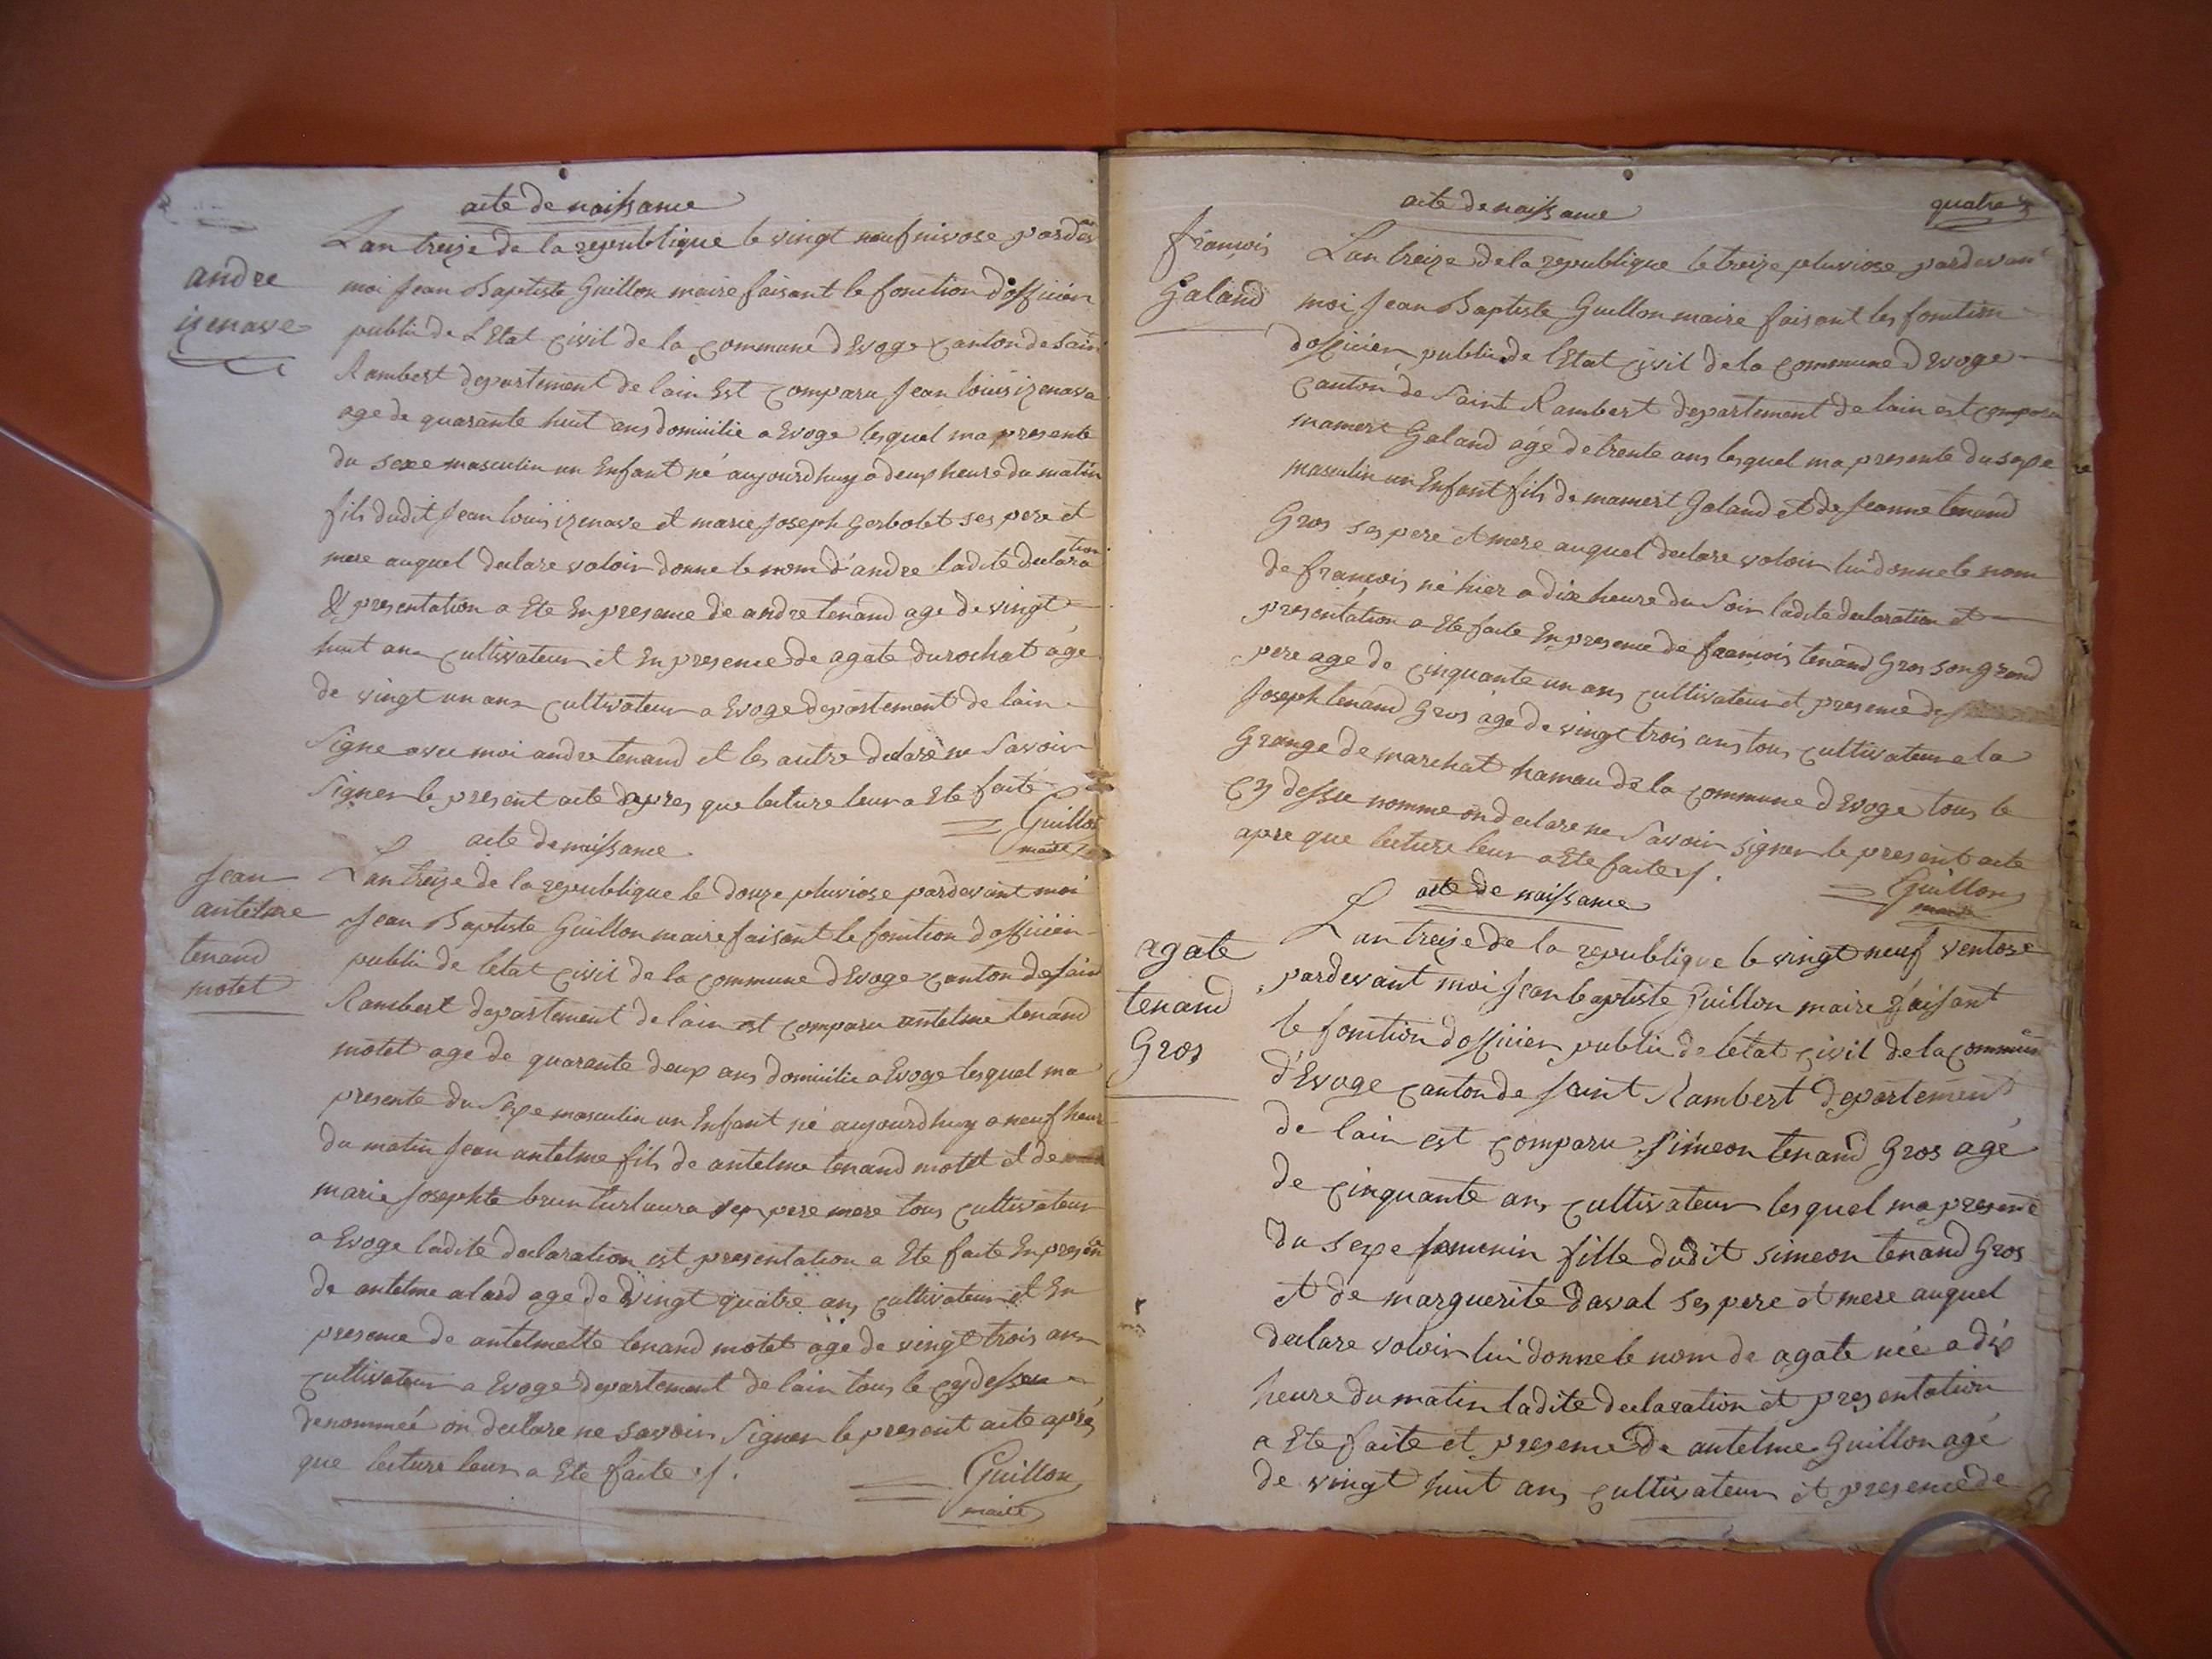 acte de naissance
andre
izenave
L'an treize de la republique le vingt neuf nivose pardev
moi Jean Baptiste Guillon maire faisant le fonction d'officier
public de L'Etat civil de la commune d'Evoge canton de Saint
Rambert departement de lain Est comparu Jean louis izenave
age de quarante huit ans domicilie a Evoge lesquel ma presente
du sexe masculin un Enfant né aujourdhuy a deux heure du matin
fils dudit Jean louis izenave et marie Joseph Gerbolet ses pere et
mere auquel declare voloir donne le nom d'andre ladite declaration
Et presentation a Ete En presence de andre tenand age de vingt
huit ans cultivateur et En presence de agate durochat agé
de vingt un ans cultivateur a Evoge departement de lain
Signe avec moi andre tenand et les autre declaré ne Savoir
Signer le present acte depres que lecture leur a Ete faite
Guillon
maire
acte de naissance
Jean
antelme
tenand
motet
L'an treize de la republique le douze pluviose pardevant moi
Jean Baptiste Guillon maire faisant le fonction d'officier
public de letat civil de la commune d'Evoge canton de Saint
Rambert departement de lain est comparu antelme tenand
motet age de quarante deux ans domicilie a Evoge lesquel ma
presente du Sexe masculin un Enfant né aujourdhuy a neuf heure
du matin Jean antelme fils de antelme tenand motet et de
marie Josephte brun ses pere mere tous cultivateur
a Evoge ladite declaration est presentation a Ete faite En presence
de antelme alard age de vingt quatre ans cultivateur et En
presence de antelmette tenand motet age de vingt trois ans
cultivateur a Evoge departement de lain tous le cy dessus
denommeé on declare ne savoir Signer le present acte aprés
que lecture leur a Ete faite ./.
Guillon
maire
acte de naissance
quatre
francois
Galand
L'an treize de la republique le treize pluviose pardevant
moi Jean Baptiste Guillon maire faisant les fonction
dofficier public de l'Etat civil de la commune d'Evoge
canton de Saint Rambert departement de lain est comparu
mamert Galand agé de trente ans lesquel ma presente du sexe
masculin un Enfant fils de mamert Galand et de Jeanne tenand
Gros ses pere et mere auquel declare voloir lui donne le nom
de francois né hier a dixe heure du Soir ladite declaration et
presentation a Ete faite En presence de francois tenand Gros son grand
pere age de cinquante un ans cultivateur et presence de
Joseph tenand Gros age de vingt trois ans tous cultivateur a la
Grange de marchat hamau de la commune d'Evoge tous le
cy dessu nomme on declare ne Savoir signer le present acte
apre que lecture leur a Ete faite ./.
Guillon
maire
acte de naissance
agate
tenand
Gros
L'an treize de la republique le vingt neuf ventose
pardevant moi Jean baptiste Guillon maire faisant
le fonction d'officier public de letat civil de la commune
d'Evoge canton de Saint Rambert departement
de lain est comparu Simeon tenand Gros agé
de cinquante ans cultivateur lesquel ma presente
du sexe femenin fille dudit simeon tenand Gros
et de marguerite daval ses pere et mere auquel
declare voloir lui donne le nom de agate née a dix
heure du matin ladite declaration et presentation
a Ete faite et presence de antelme Guillon agé
de vingt huit ans cultivateur et presence de